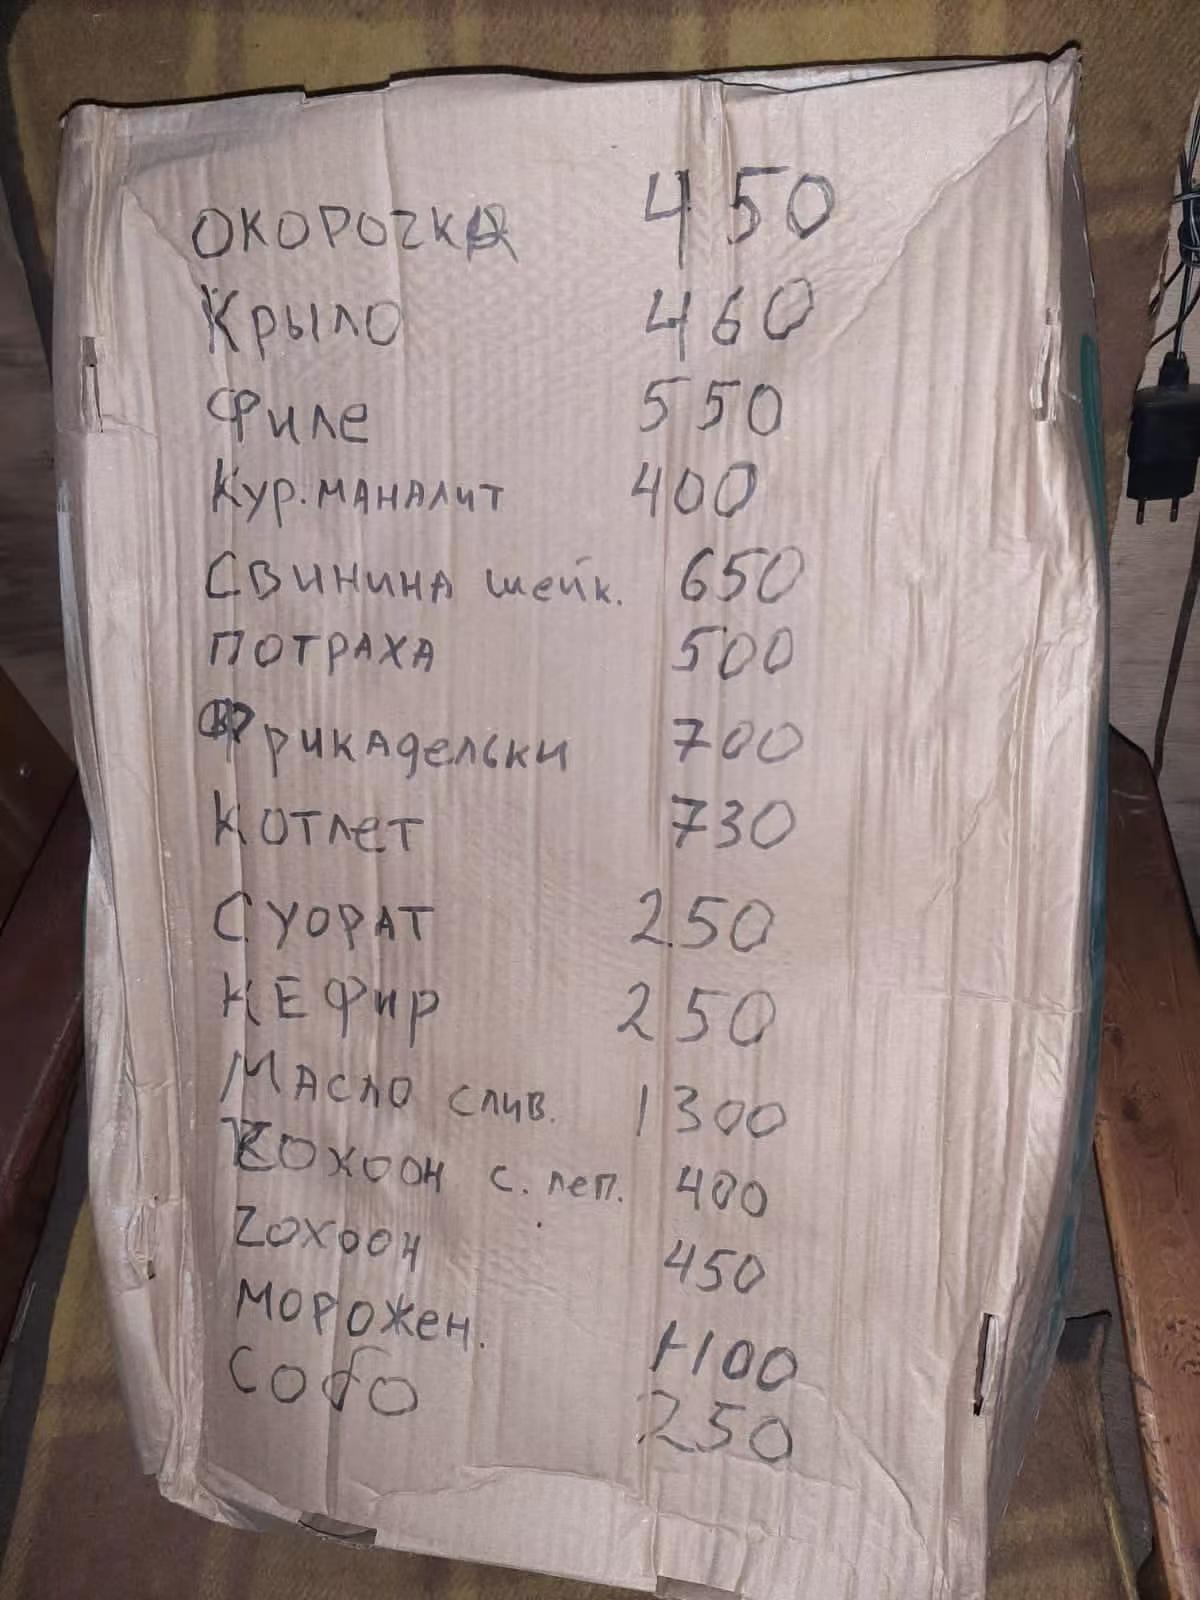 ОКОРОЧКА 450
Крыло 460
Филе 550
Кур.маналит 400
Свинина шейк. 650
Потраха 500
Фрикадельки 700
Котлет 730
Суорат 250
Кефир 250
Масло слив. 1300
хохоон с. леп. 400
Zохоон 450
Морожен. 1100
Собо 250